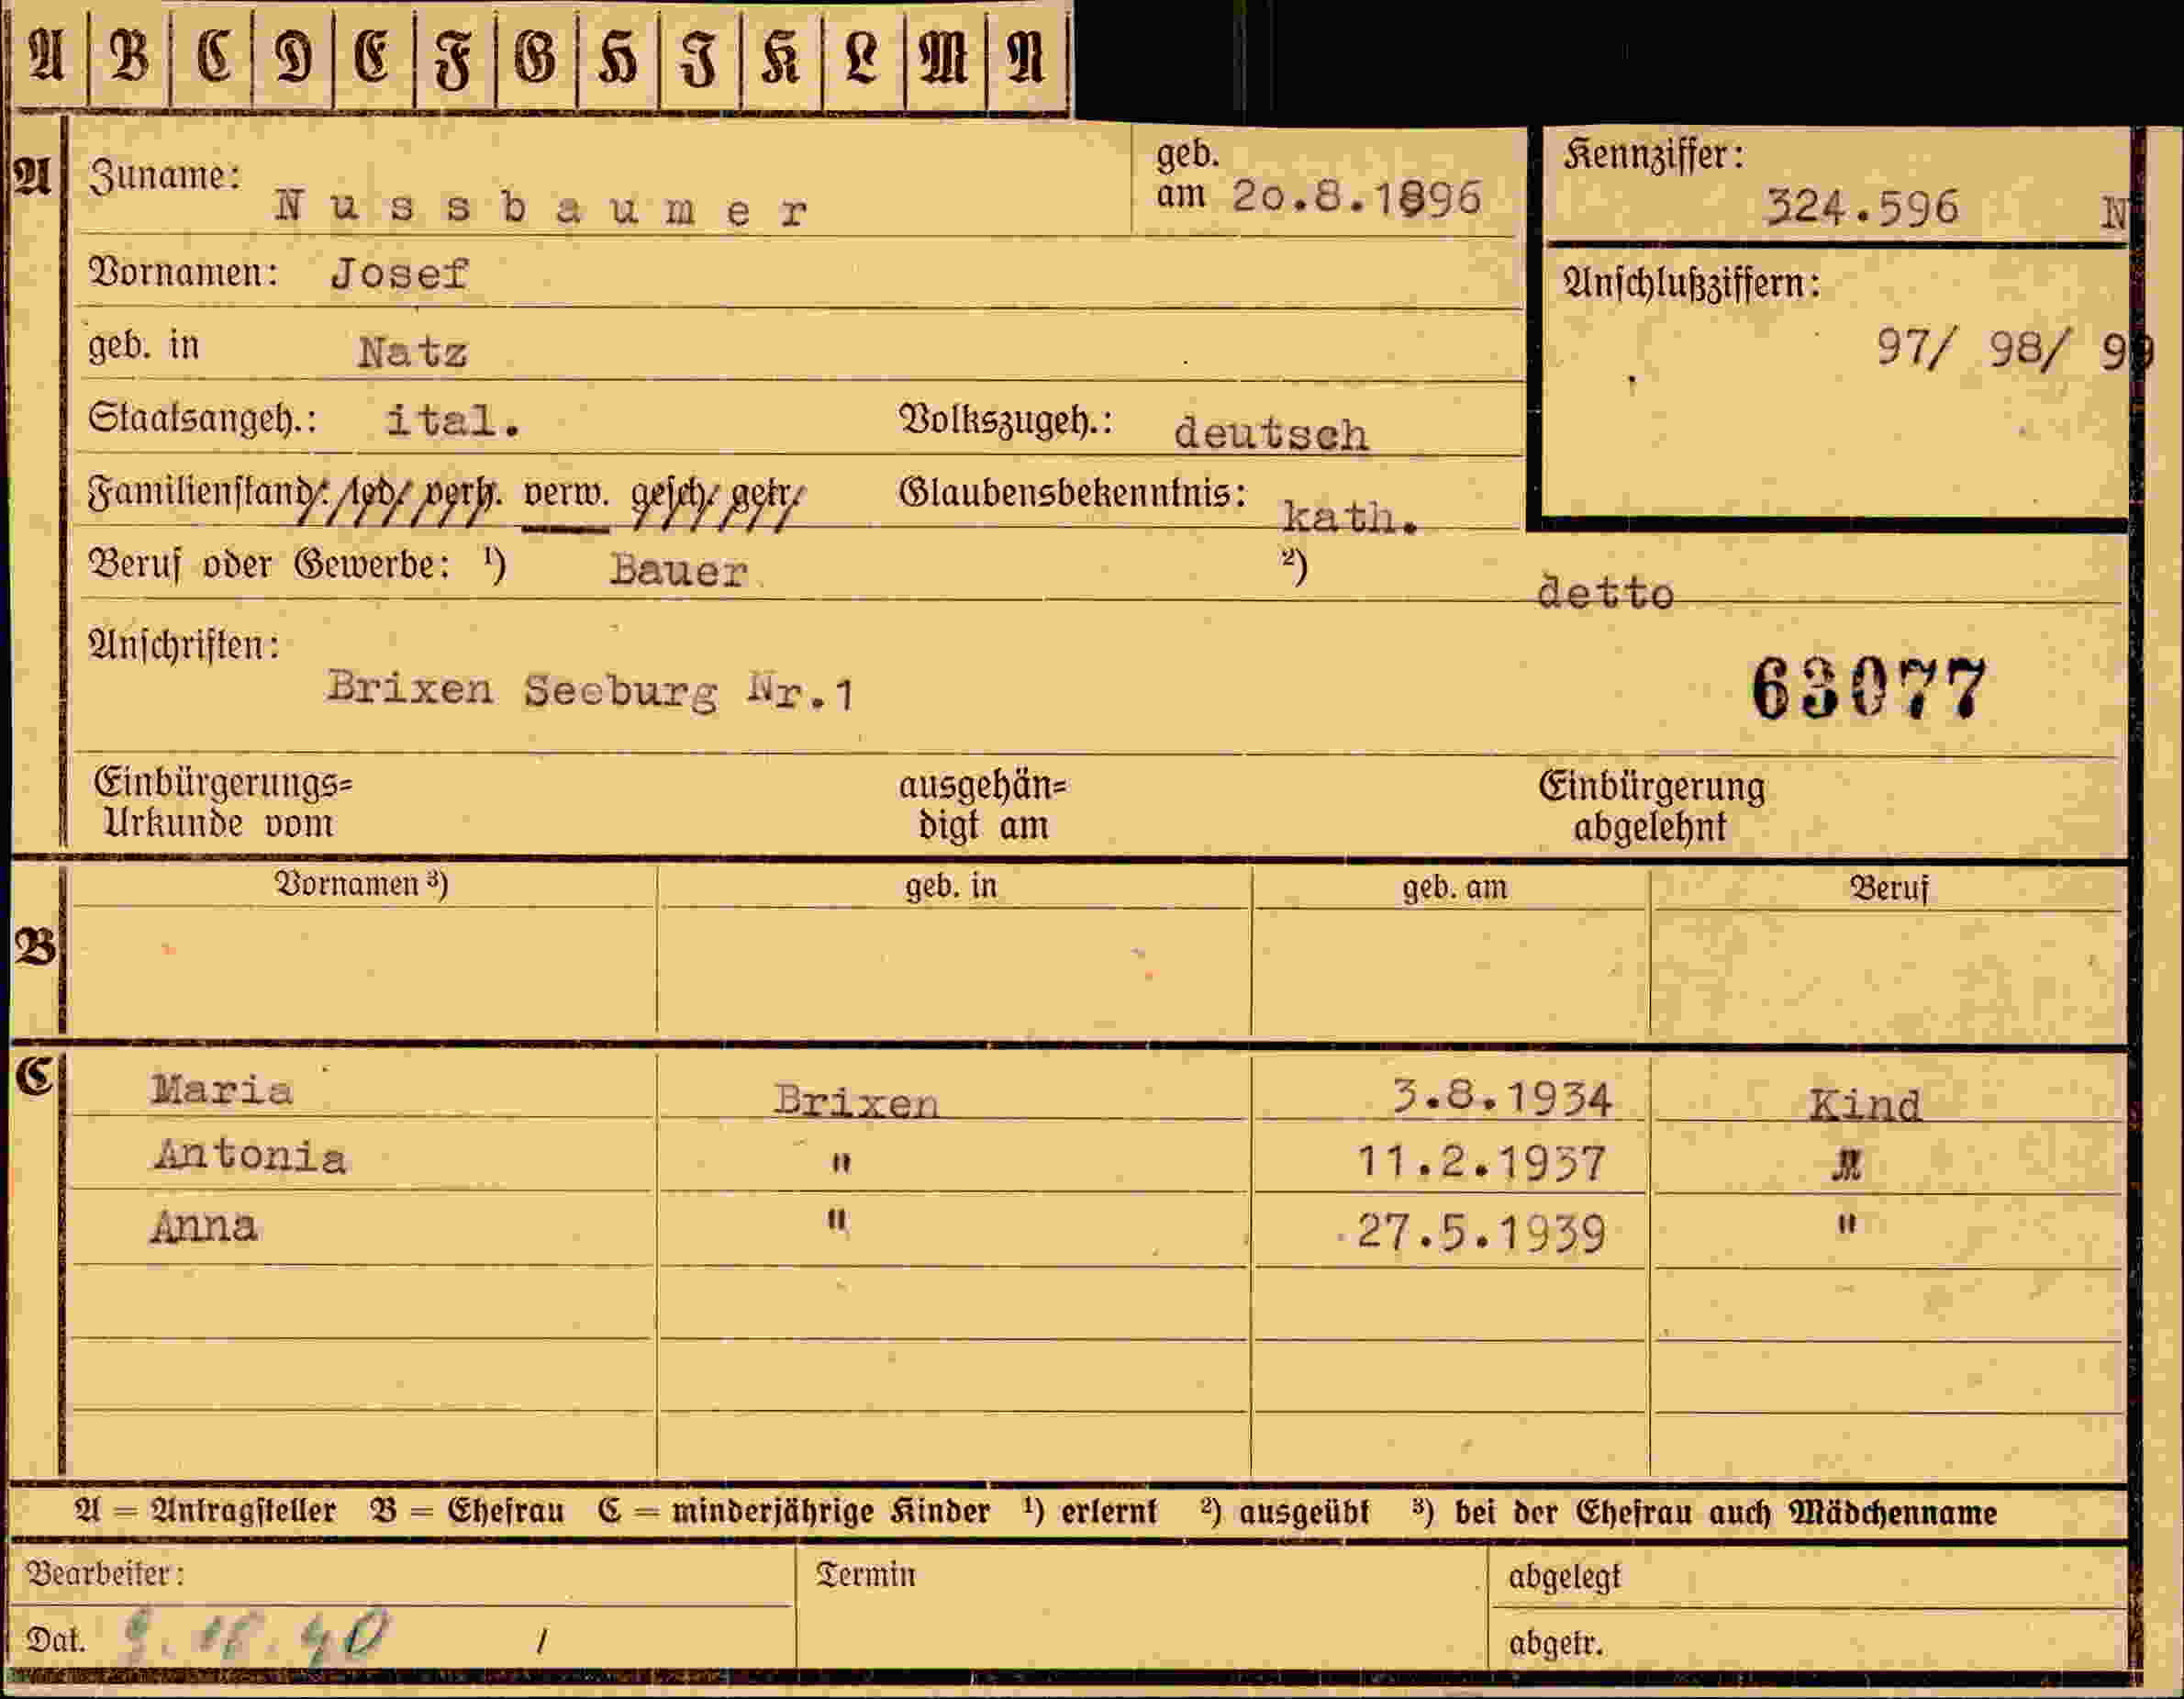 A B C D E F G H I K L M N
A Zuname: Nussbaumer geb. am 20.8.1896 Kennziffer: 324.596 N
Vornamen: Josef Anschlußziffern:
geb. in Natz 97/ 98/ 99
Staatsangeh.: ital. Volkszugeh.: deutsch
Familienstand: led. verh. verw. gesch. getr. Glaubensbekenntnis: kath.
Beruf oder Gewerbe: ¹) Bauer ²) detto
Anschriften:
Brixen Seeburg Nr.1 63077
Einbürgerungs= ausgehän= Einbürgerung
Urkunde vom digt am abgelehnt
Vornamen ³) geb. in geb. am Beruf
B
C Maria Brixen 3.8.1934 Kind
Antonia " 11.2.1937 "
Anna " 27.5.1939 "
A = Antragsteller B = Ehefrau C = minderjährige Kinder ¹) erlernt ²) ausgeübt ³) bei der Ehefrau auch Mädchenname
Bearbeiter: Termin abgelegt
Dat. / abgetr.